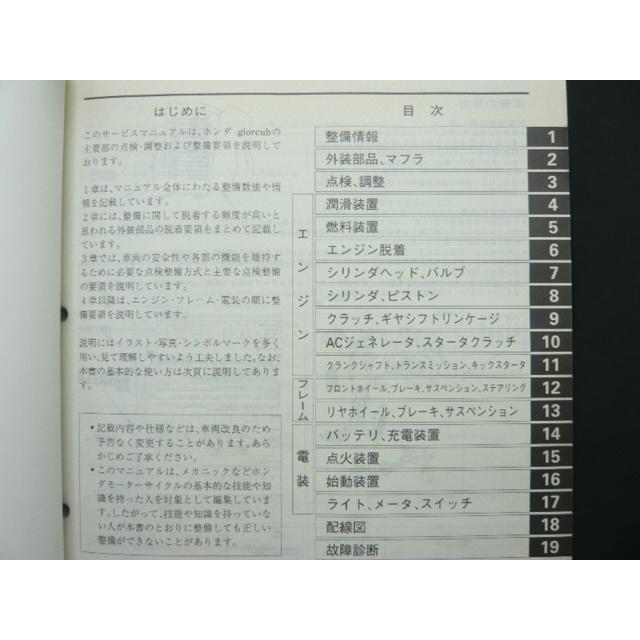 はじめに
このサービスマニュアルは、ホンダ giorcubの
主要部の点検・調整および整備要領を説明して
おります。
1章は、マニュアル全体にわたる整備数値や情
報を記載しています。
2章には、整備に関して脱着する頻度が高いと
思われる外装部品の脱着要領をまとめて記載し
ています。
3章では、車両の安全性や各部の機能を維持す
るために必要な点検整備方式と主要な点検整備
の要領を説明しています。
4章以降は、エンジン・フレーム・電装の順に整
備要領を説明しています。
説明にはイラスト・写真・シンボルマークを多く
用い、見て理解しやすいよう工夫しました。なお、
本書の基本的な使い方は次頁に説明してありま
す。
•記載内容や仕様などは、車両改良のため
予告なく変更することがあります。あら
かじめご了承ください。
•このマニュアルは、メカニックなどホン
ダモーターサイクルの基本的な技能や知
識を持った人を対象として編集していま
す。したがって、技能や知識を持っていな
い人が本書のとおりに整備しても正しい
整備ができないことがあります。
目 次
整備情報 1
外装部品、マフラ 2
点検、調整 3
エンジン
潤滑装置 4
燃料装置 5
エンジン脱着 6
シリンダヘッド、バルブ 7
シリンダ、ピストン 8
クラッチ、ギヤシフトリンケージ 9
ACジェネレータ、スタータクラッチ 10
クランクシャフト、トランスミッション、キックスタータ 11
フレーム
フロントホイール、ブレーキ、サスペンション、ステアリング 12
リヤホイール、ブレーキ、サスペンション 13
電装
バッテリ、充電装置 14
点火装置 15
始動装置 16
ライト、メータ、スイッチ 17
配線図 18
故障診断 19